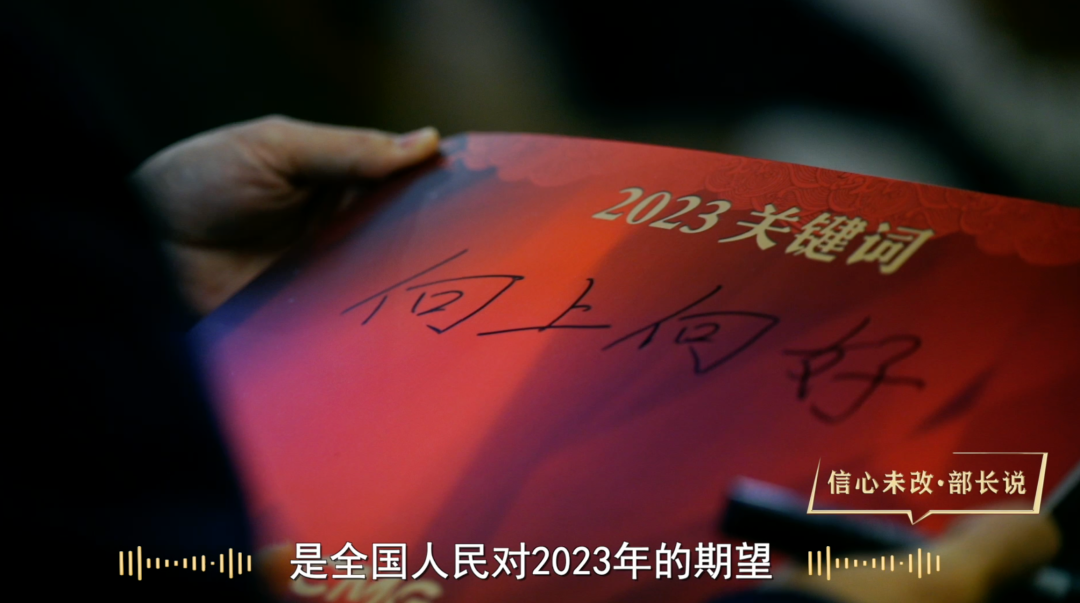 2023 关键词
向上向好
信心未改·部长说
是全国人民对2023年的期望
CMG